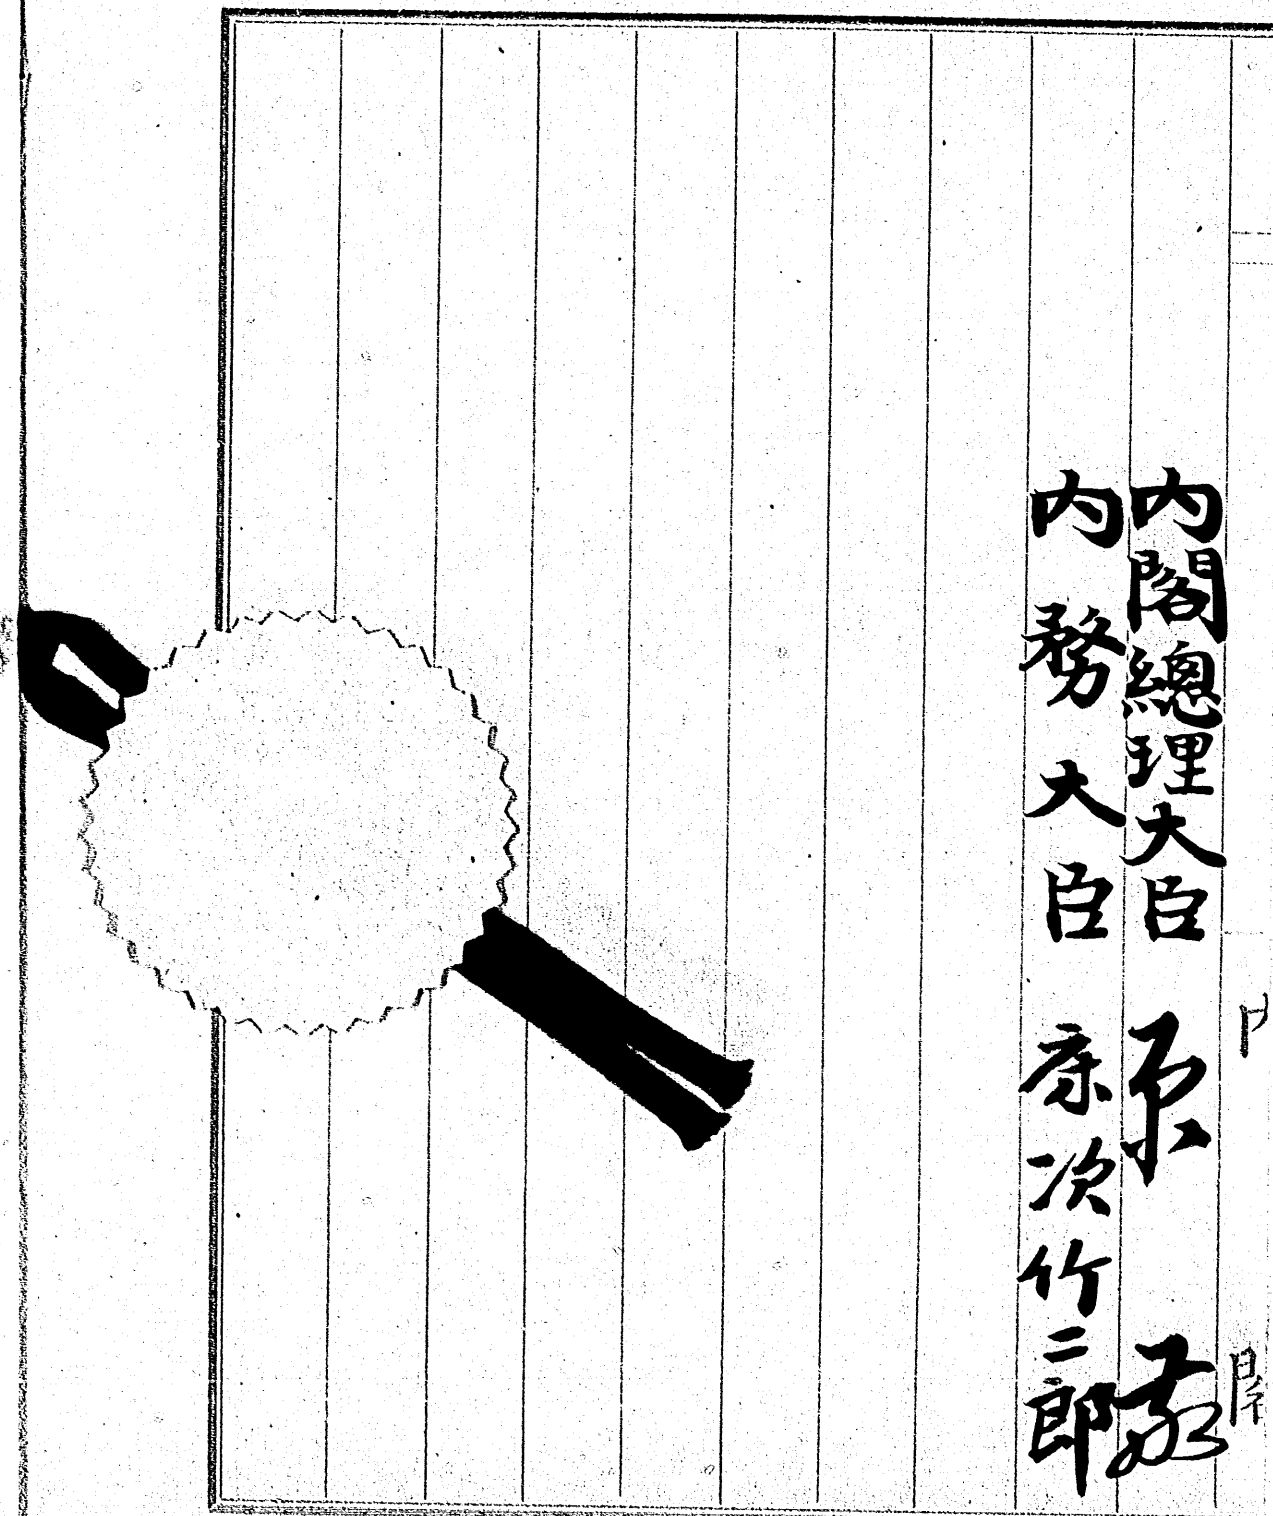 内閣總理大臣 原 敬
内務大臣 床次竹二郎
内閣